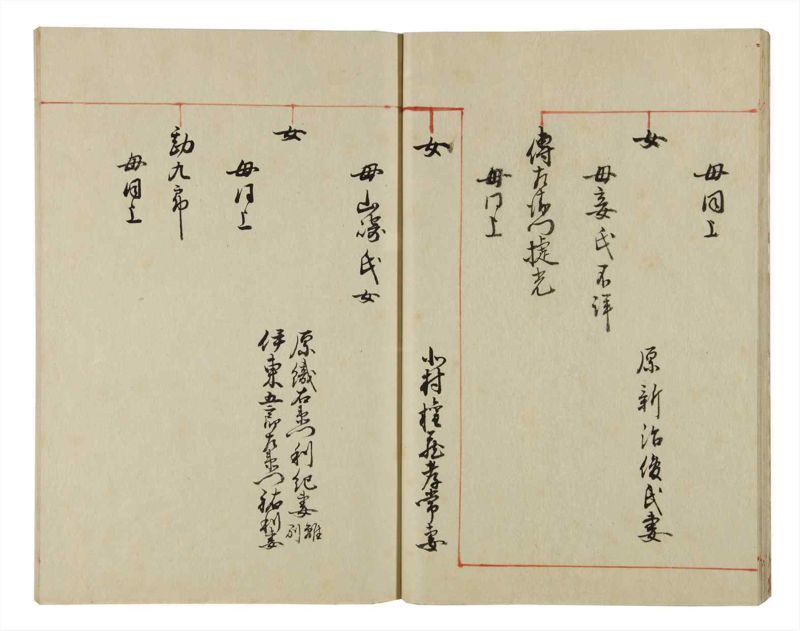 母同上
女
原新治俊氏妻
母妾氏不詳
傳左衛門捷光
母同上
女
北村権蔵孝常妻
母山崎氏女
女
原織右衛門利紀妻 離別
伊東五郎左衛門祐利妻
母同上
勘九郎
母同上